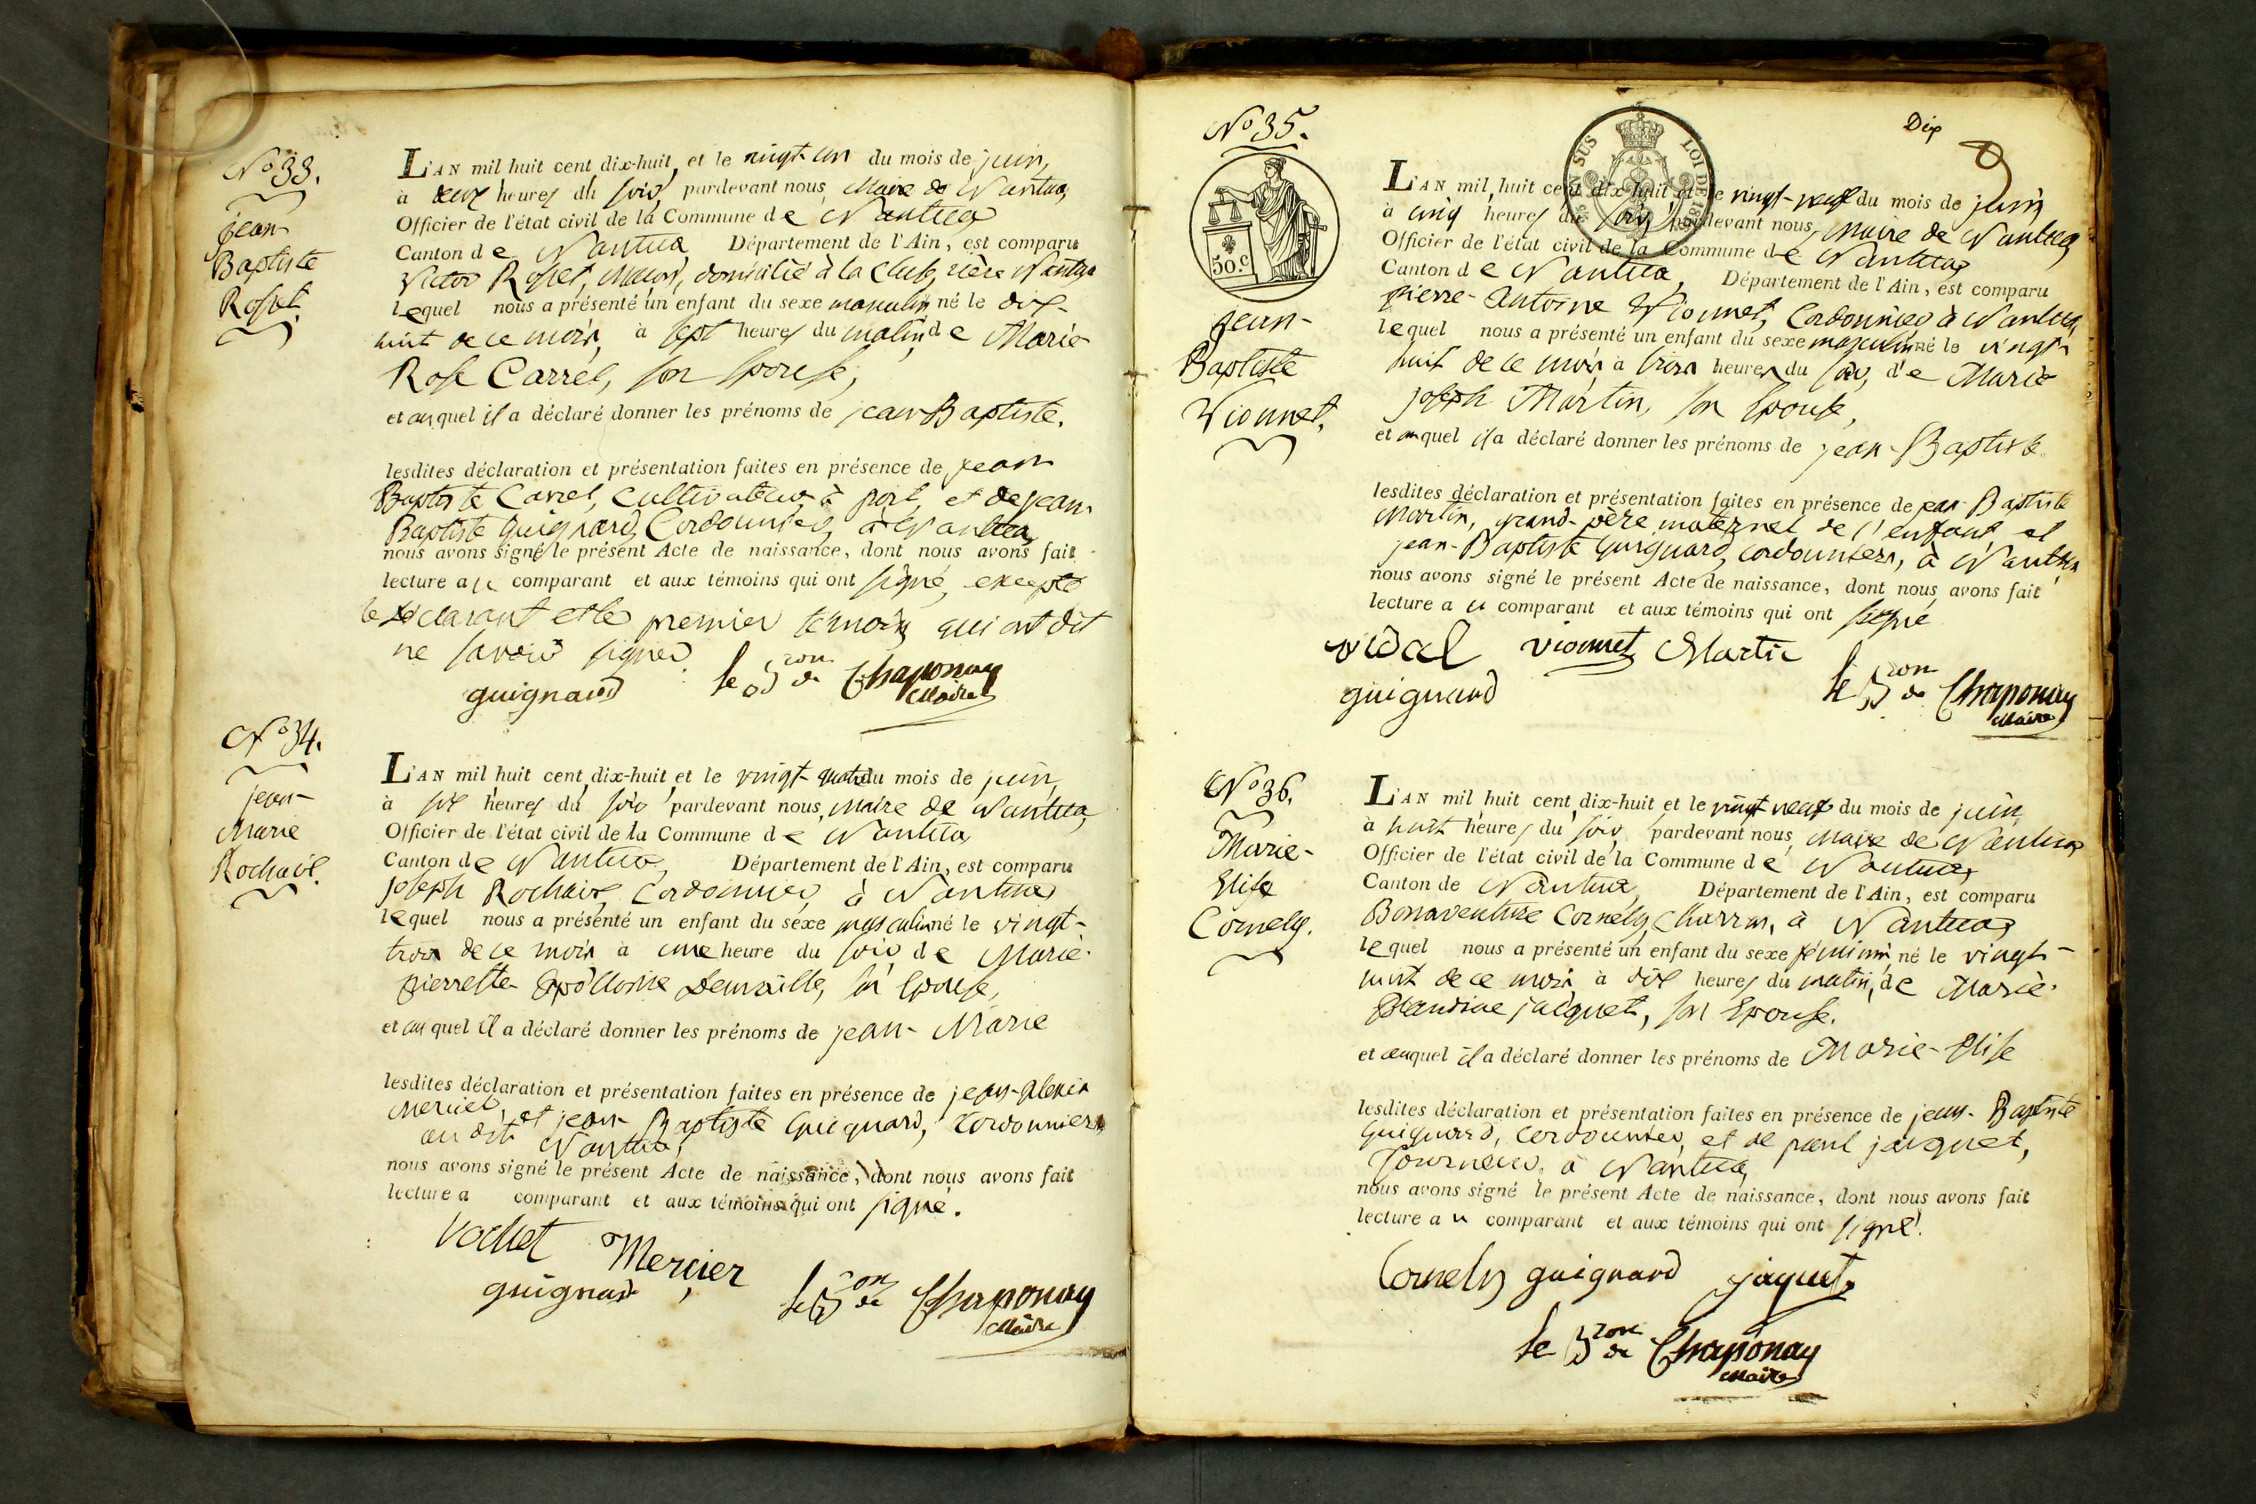 N° 33.
jean-
Baptiste
Rosset.
L'AN mil huit cent dix-huit, et le vingt-un du mois de juin,
à deux heures du soir, pardevant nous Maire de Nantua,
Officier de l'état civil de la Commune de Nantua
Canton de Nantua Département de l'Ain, est comparu
Victor Rosset, domicilié à la Cluse, rière Nantua
lequel nous a présenté un enfant du sexe masculin né le dix-
huit de ce mois, à sept heures du matin, de Marie
Rose Carrel, son Epouse,
et auquel il a déclaré donner les prénoms de jean-Baptiste.
lesdites déclaration et présentation faites en présence de jean
Baptiste Carrel, Cultivateur à port, et de jean-
Baptiste Guignard, Cordonnier, à Nantua,
nous avons signé le présent Acte de naissance, dont nous avons fait
lecture au comparant et aux témoins qui ont signé, excepté
le déclarant et le premier témoin qui ont dit
ne savoir signer.
guignard le Bron de Chaponay
Maire
N° 34.
jean-
Marie
Rochaix.
L'AN mil huit cent dix-huit et le vingt-quatre du mois de juin,
à six heures du soir pardevant nous, Maire de Nantua,
Officier de l'état civil de la Commune de Nantua
Canton de Nantua, Département de l'Ain, est comparu
joseph Rochaix, Cordonnier, à Nantua
lequel nous a présenté un enfant du sexe masculin né le vingt-
trois de ce mois à une heure du soir de Marie-
pierrette Apollonie sa Epouse,
et auquel il a déclaré donner les prénoms de jean-Marie
lesdites déclaration et présentation faites en présence de jean-Alexis
Mercier, et jean-Baptiste Guignard, Cordonniers
au dit Nantua,
nous avons signé le présent Acte de naissance, dont nous avons fait
lecture a comparant et aux témoins qui ont signé.
Mercier
guignard le Bron de Chaponay
Maire
Dix
N° 35.
50.c
SUS LOI DE 18
jean-
Baptiste
Vionnet.
L'AN mil huit cent dix-huit et le vingt-neuf du mois de juin
à cinq heures du soir, pardevant nous, Maire de Nantua
Officier de l'état civil de la Commune de Nantua
Canton de Nantua, Département de l'Ain, est comparu
pierre-Antoine Vionnet, Cordonnier à Nantua,
lequel nous a présenté un enfant du sexe masculin né le vingt-
huit de ce mois à trois heures du soir, de Marie
joseph Martin, son Epouse,
et auquel il a déclaré donner les prénoms de jean-Baptiste
lesdites déclaration et présentation faites en présence de jean-Baptiste
Martin, grand-père maternel de l'enfant et
jean-Baptiste Guignard, cordonniers, à Nantua
nous avons signé le présent Acte de naissance, dont nous avons fait
lecture au comparant et aux témoins qui ont signé
vidal vionnet Martin
guignard le Bron de Chaponay
Maire
N° 36.
Marie-
Elise
Cornely.
L'AN mil huit cent dix-huit et le vingt-neuf du mois de juin,
à huit heures du soir, pardevant nous, Maire de Nantua
Officier de l'état civil de la Commune de Nantua
Canton de Nantua, Département de l'Ain, est comparu
Bonaventure Cornely, Charron, à Nantua
lequel nous a présenté un enfant du sexe féminin né le vingt-
huit de ce mois à dix heures du matin, de Marie-
Blandine jacquet, son Epouse.
et auquel il a déclaré donner les prénoms de Marie-Elise
lesdites déclaration et présentation faites en présence de jean-Baptiste
Guignard, Cordonnier, et de paul jacquet,
Tourneur, à Nantua,
nous avons signé le présent Acte de naissance, dont nous avons fait
lecture au comparant et aux témoins qui ont signé.
Cornely guignard jaquet
le Bron de Chaponay
Maire